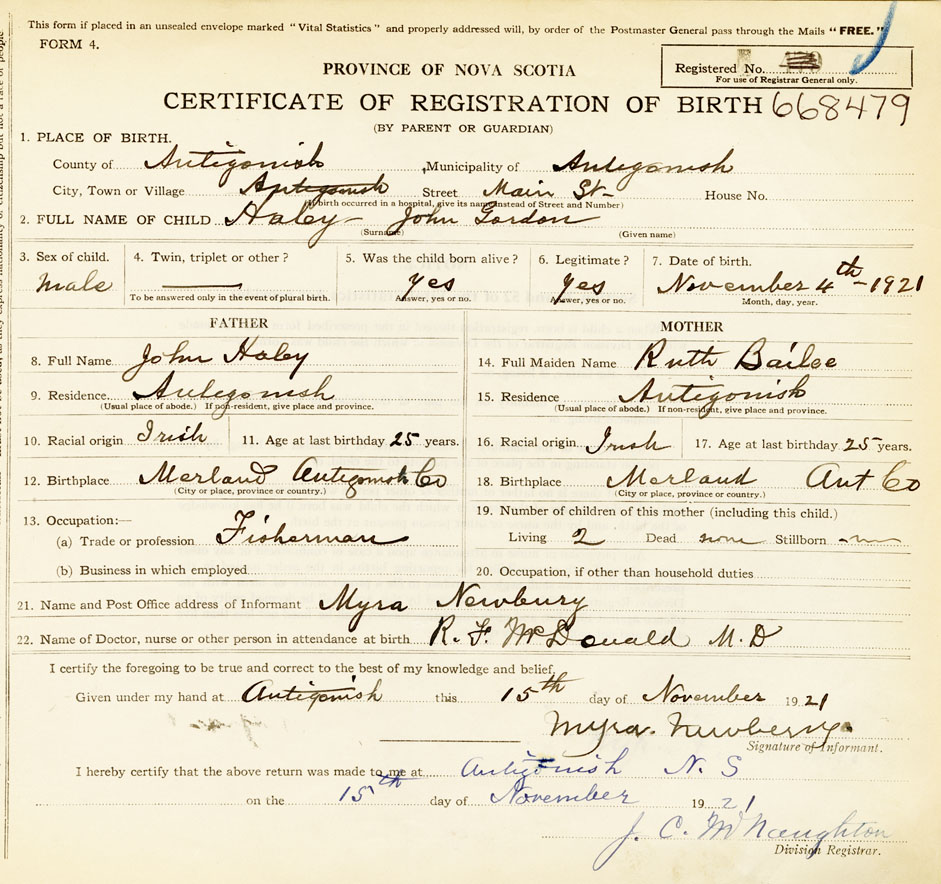 This form if placed in an unsealed envelope marked "Vital Statistics" and properly addressed will, by order of the Postmaster General pass through the Mails "FREE."
FORM 4.
Registered No.
For use of Registrar General only.
PROVINCE OF NOVA SCOTIA
CERTIFICATE OF REGISTRATION OF BIRTH 668479
(BY PARENT OR GUARDIAN)
1. PLACE OF BIRTH.
County of Antigonish Municipality of Antigonish
City, Town or Village Antigonish Street Main St- House No.
(If birth occurred in a hospital, give its name instead of Street and Number)
2. FULL NAME OF CHILD Haley - John Gordon
(Surname) (Given name)
3. Sex of child. 4. Twin, triplet or other ? 5. Was the child born alive ? 6. Legitimate ? 7. Date of birth.
Male Yes Yes November 4th - 1921
To be answered only in the event of plural birth. Answer, yes or no. Answer, yes or no. Month, day, year.
FATHER
8. Full Name John Haley
9. Residence Antigonish
(Usual place of abode.) If non-resident, give place and province.
10. Racial origin Irish 11. Age at last birthday 25 years.
12. Birthplace Merland Antigonish Co
(City or place, province or country.)
13. Occupation:—
(a) Trade or profession Fisherman
(b) Business in which employed
MOTHER
14. Full Maiden Name Ruth Bailee
15. Residence Antigonish
(Usual place of abode.) If non-resident, give place and province.
16. Racial origin Irish 17. Age at last birthday 25 years.
18. Birthplace Merland Ant Co
(City or place, province or country.)
19. Number of children of this mother (including this child.)
Living 2 Dead none Stillborn
20. Occupation, if other than household duties
21. Name and Post Office address of Informant Myra Newbury
22. Name of Doctor, nurse or other person in attendance at birth R. F. McDonald M.D
I certify the foregoing to be true and correct to the best of my knowledge and belief,
Given under my hand at Antigonish this 15th day of November 1921
Myra Newberry
Signature of Informant.
I hereby certify that the above return was made to me at Antigonish N. S
on the 15th day of November 1921
J. C. McNaughton
Division Registrar.